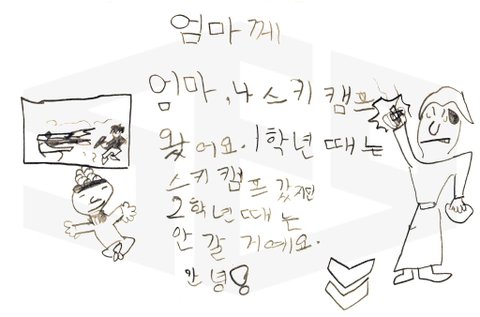 엄마께
엄마, 나 스키 캠프
왔어요. 1학년 때는
스키 캠프 갔지만
2학년 때는
안 갈 거예요.
안녕!